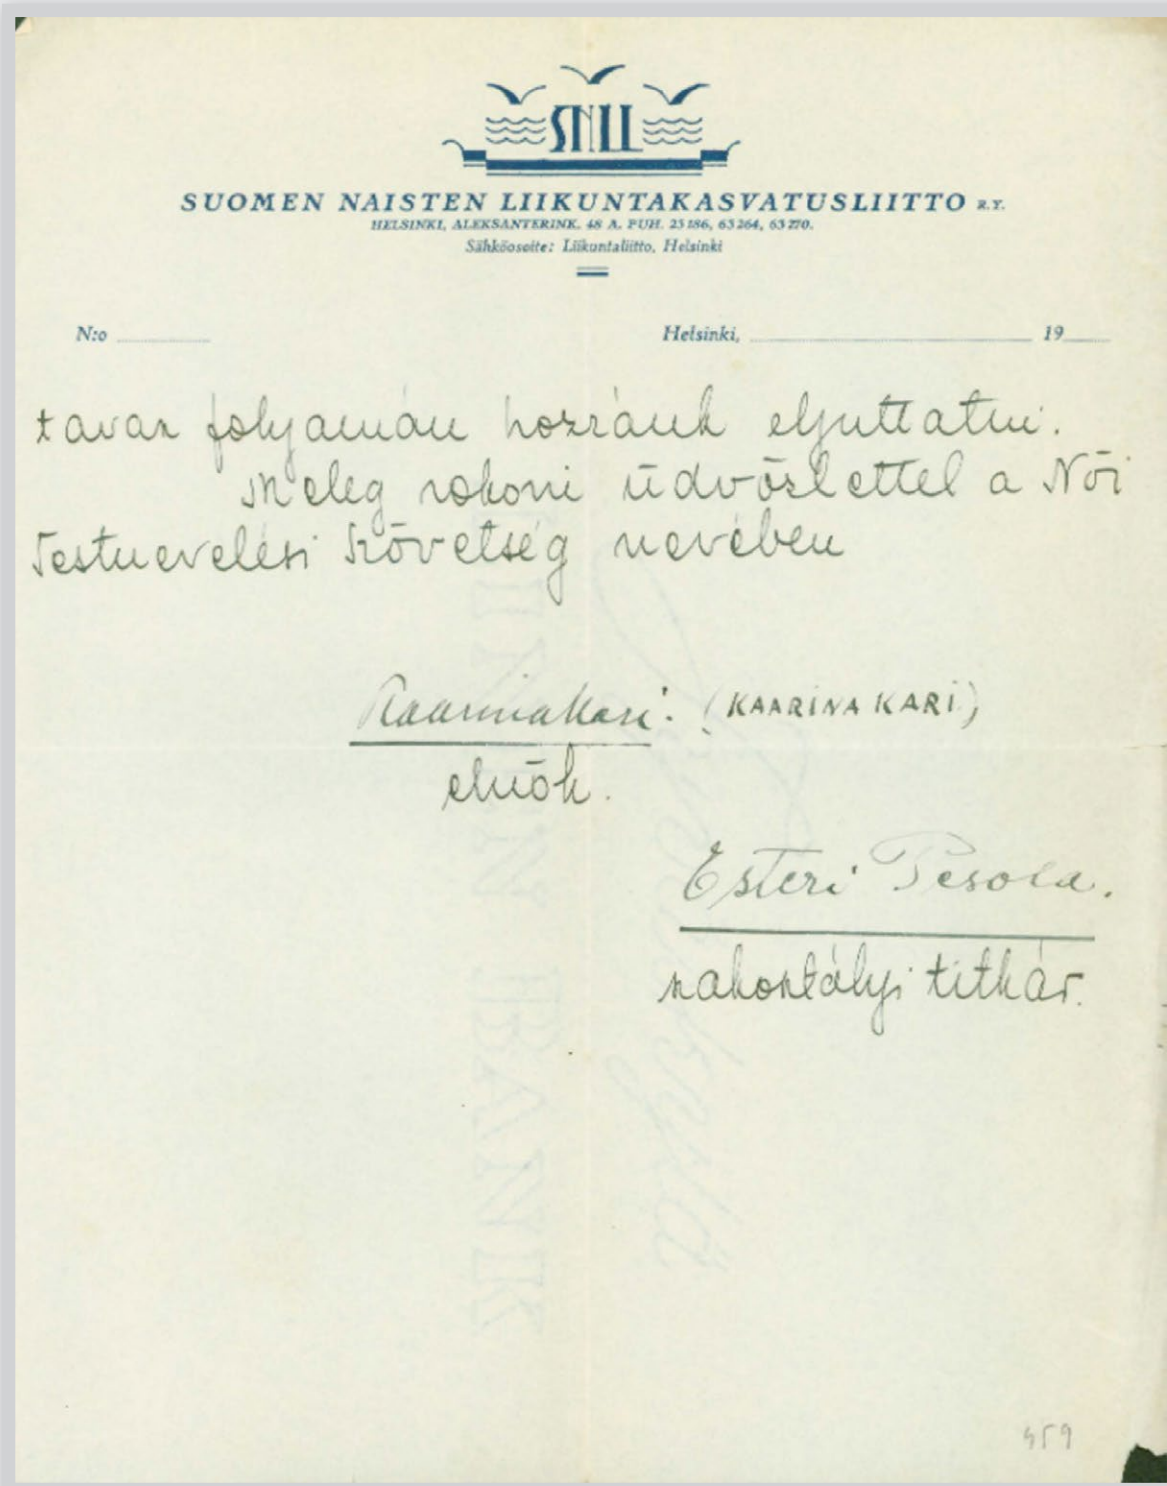 SNLL
SUOMEN NAISTEN LIIKUNTAKASVATUSLIITTO R.Y.
HELSINKI, ALEKSANTERINK. 48 A. PUH. 23186, 63264, 63270.
Sähköosoite: Liikuntaliitto, Helsinki
N:o
Helsinki, 19
tavasz folyamán hozzánk eljuttatni.
Meleg rokoni üdvözlettel a Női
Testnevelési Szövetség nevében
Kaarina Kari. (KAARINA KARI)
elnök.
Esteri Pesola.
szakosztályi titkár.
459